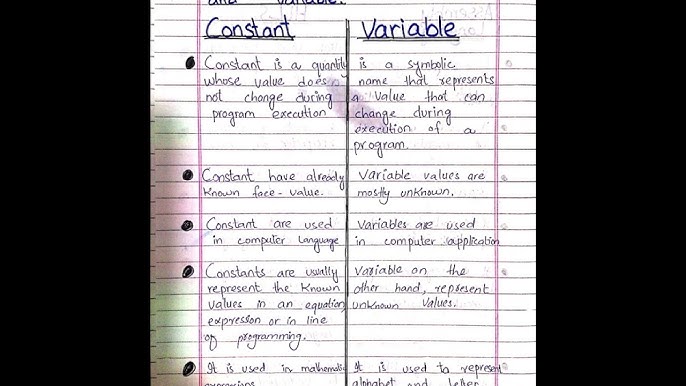 and variable.
Constant
Variable
Constant is a quantity
whose value does
not change during
program execution
is a symbolic
name that represents
a value that can
change during
execution of a
program.
Constant have already
known face-value.
Variable values are
mostly unknown.
Constant are used
in computer language
Variables are used
in computer application
Constants are usually
represent the known
values in an equation,
expression or in line
of programming.
Variable on the
other hand, represent
unknown values.
It is used in mathematic
It is used to represent
alphabet and letter